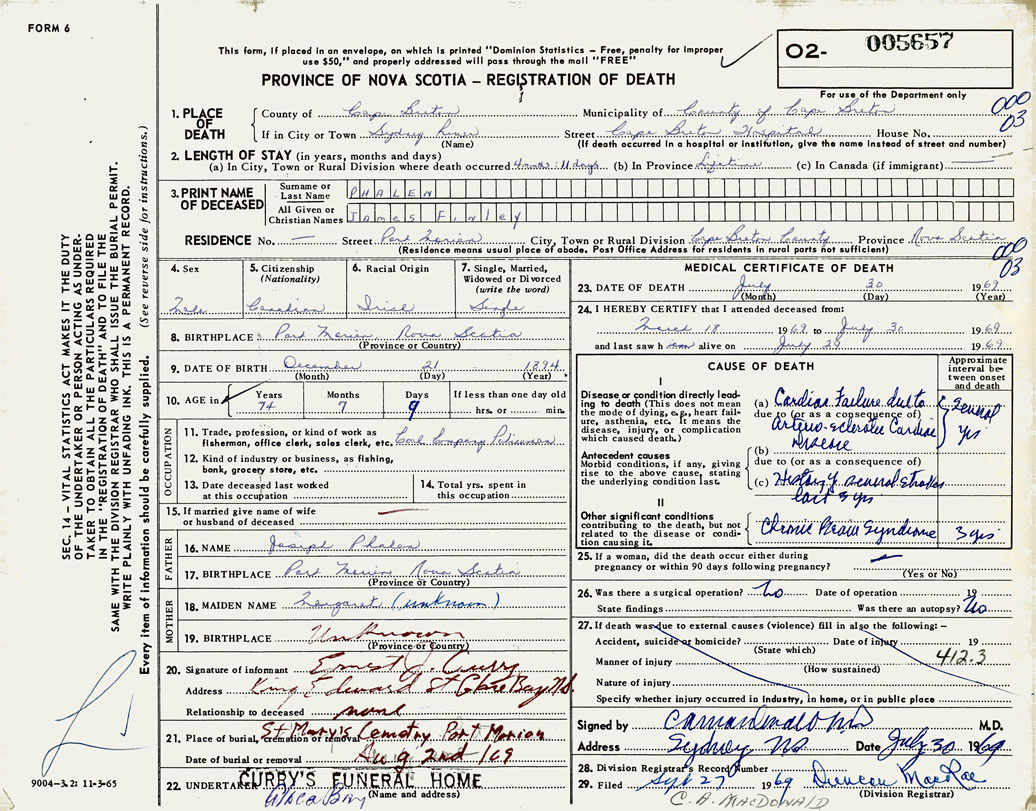 FORM 6
This form, if placed in an envelope, on which is printed "Dominion Statistics – Free, penalty for improper
use $50," and properly addressed will pass through the mail "FREE"
O2- 005657
For use of the Department only
PROVINCE OF NOVA SCOTIA – REGISTRATION OF DEATH
000
03
1. PLACE OF DEATH
County of Cape Breton Municipality of County of Cape Breton
If in City or Town Sydney River Street Cape Breton Hospital House No.
(Name) (If death occurred in a hospital or institution, give the name instead of street and number)
2. LENGTH OF STAY (in years, months and days)
(a) In City, Town or Rural Division where death occurred 4 months : 11 days (b) In Province Lifetime (c) In Canada (if immigrant) —
3. PRINT NAME OF DECEASED
Surname or Last Name PHALEN
All Given or Christian Names James Finley
RESIDENCE No. — Street Port Morien City, Town or Rural Division Cape Breton County Province Nova Scotia
(Residence means usual place of abode. Post Office Address for residents in rural parts not sufficient)
000
03
4. Sex
Male
5. Citizenship
(Nationality)
Canadian
6. Racial Origin
Irish
7. Single, Married,
Widowed or Divorced
(write the word)
Single
8. BIRTHPLACE Port Morien, Nova Scotia
(Province or Country)
9. DATE OF BIRTH December 21 1894
(Month) (Day) (Year)
10. AGE in Years Months Days If less than one day old
74 7 9 hrs. or min.
OCCUPATION
11. Trade, profession, or kind of work as
fisherman, office clerk, sales clerk, etc. Coal Company Policeman
12. Kind of industry or business, as fishing,
bank, grocery store, etc.
13. Date deceased last worked
at this occupation
14. Total yrs. spent in
this occupation
15. If married give name of wife
or husband of deceased —
FATHER
16. NAME Joseph Phalen
17. BIRTHPLACE Port Morien Nova Scotia
(Province or Country)
MOTHER
18. MAIDEN NAME Margaret (unknown)
19. BIRTHPLACE Unknown
(Province or Country)
20. Signature of informant Ernest J. Curry
Address King Edward St Glace Bay N.S.
Relationship to deceased none
21. Place of burial, cremation or removal St Mary's Cemetry Port Morion
Date of burial or removal Aug 2nd /69
22. UNDERTAKER CURRY'S FUNERAL HOME
Glace Bay (Name and address)
MEDICAL CERTIFICATE OF DEATH
23. DATE OF DEATH July 30 1969
(Month) (Day) (Year)
24. I HEREBY CERTIFY that I attended deceased from:
March 18 1969 to July 30 1969
and last saw him alive on July 29 1969
CAUSE OF DEATH
Approximate
interval be-
tween onset
and death
I
Disease or condition directly lead-
ing to death (This does not mean
the mode of dying, e.g., heart fail-
ure, asthenia, etc. It means the
disease, injury, or complication
which caused death.)
(a) Cardiac Failure due to
due to (or as a consequence of)
Arterio-sclerotic Cardiac
Disease
Several
yrs
Antecedent causes
Morbid conditions, if any, giving
rise to the above cause, stating
the underlying condition last.
(b)
due to (or as a consequence of)
(c) History of several strokes
last 3 yrs
II
Other significant conditions
contributing to the death, but not
related to the disease or condi-
tion causing it.
Chronic Brain Syndrome 3 yrs
25. If a woman, did the death occur either during
pregnancy or within 90 days following pregnancy? —
(Yes or No)
26. Was there a surgical operation? No Date of operation 19
State findings Was there an autopsy? No
27. If death was due to external causes (violence) fill in also the following:–
Accident, suicide or homicide? Date of injury 19
(State which)
412.3
Manner of injury
(How sustained)
Nature of injury
Specify whether injury occurred in industry, in home, or in public place
Signed by M.D.
Address Sydney NS Date July 30 1969
28. Division Registrar's Record Number
29. Filed Sept 27 1969 Duncan MacRae
(Division Registrar)
C. A. MACDONALD
SEC. 14 – VITAL STATISTICS ACT MAKES IT THE DUTY
OF THE UNDERTAKER OR PERSON ACTING AS UNDER-
TAKER TO OBTAIN ALL THE PARTICULARS REQUIRED
IN THE "REGISTRATION OF DEATH" AND TO FILE THE
SAME WITH THE DIVISION REGISTRAR WHO SHALL ISSUE THE BURIAL PERMIT.
WRITE PLAINLY WITH UNFADING INK. THIS IS A PERMANENT RECORD.
Every item of information should be carefully supplied. (See reverse side for instructions.)
9004–3.2: 11-3-65